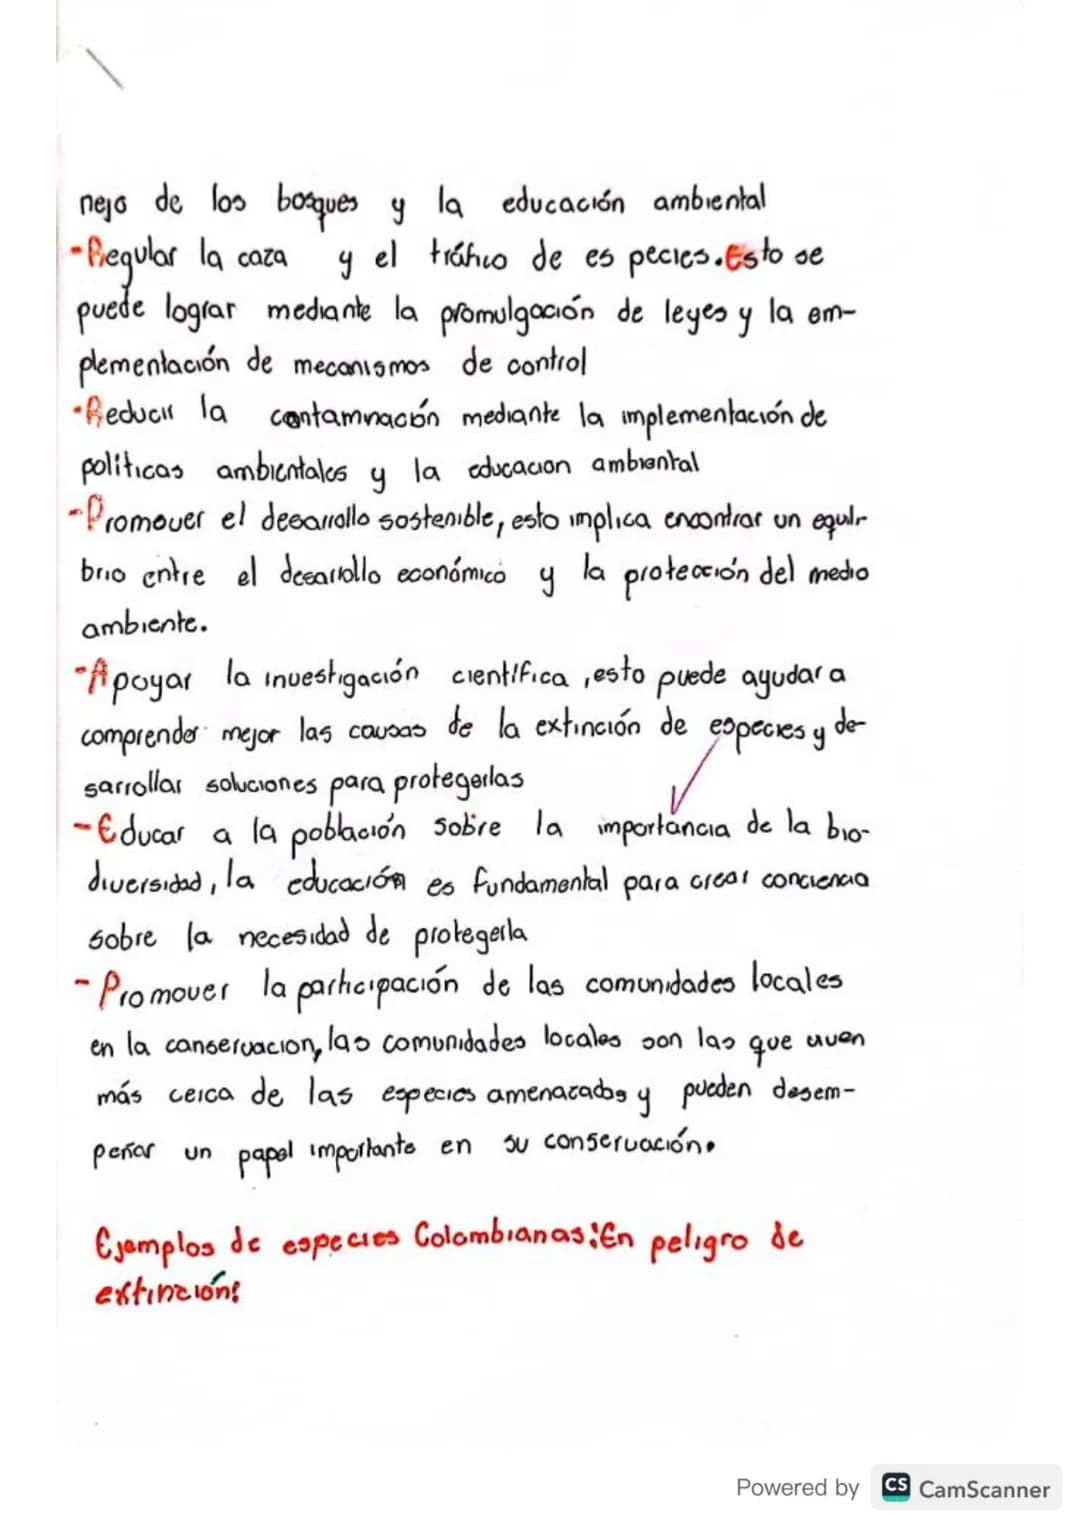 nejo de los bosques y la educación ambiental
-Regular la caza y el tráfico de es pecies.Esto se
puede lograr mediante la promulgación de leyes y la em-
plementación de mecanismos de control
-Reducir la contamnación mediante la implementación de
politicas ambientales y la educacion ambiental
-Promover el desarrollo sostenible, esto implica encontrar un equili-
brio entre el desarrollo económico y la protección del medio
ambiente.
-Apoyar la investigación científica ,esto puede ayudar a
comprender mejor las causas de la extinción de especies y de-
sarrollar soluciones para protegerlas
-Educar a la población sobre la importancia de la bio-
diversidad, la educación es fundamental para crear conciencia
sobre la necesidad de protegerla
- Promover la participación de las comunidades locales
en la conservacion, las comunidades locales son las que viven
más cerca de las especies amenazadas y pueden desem-
peñar un papel importante en su conservación.
Ejemplos de especies Colombianas:En peligro de
extinción:
Powered by CS CamScanner